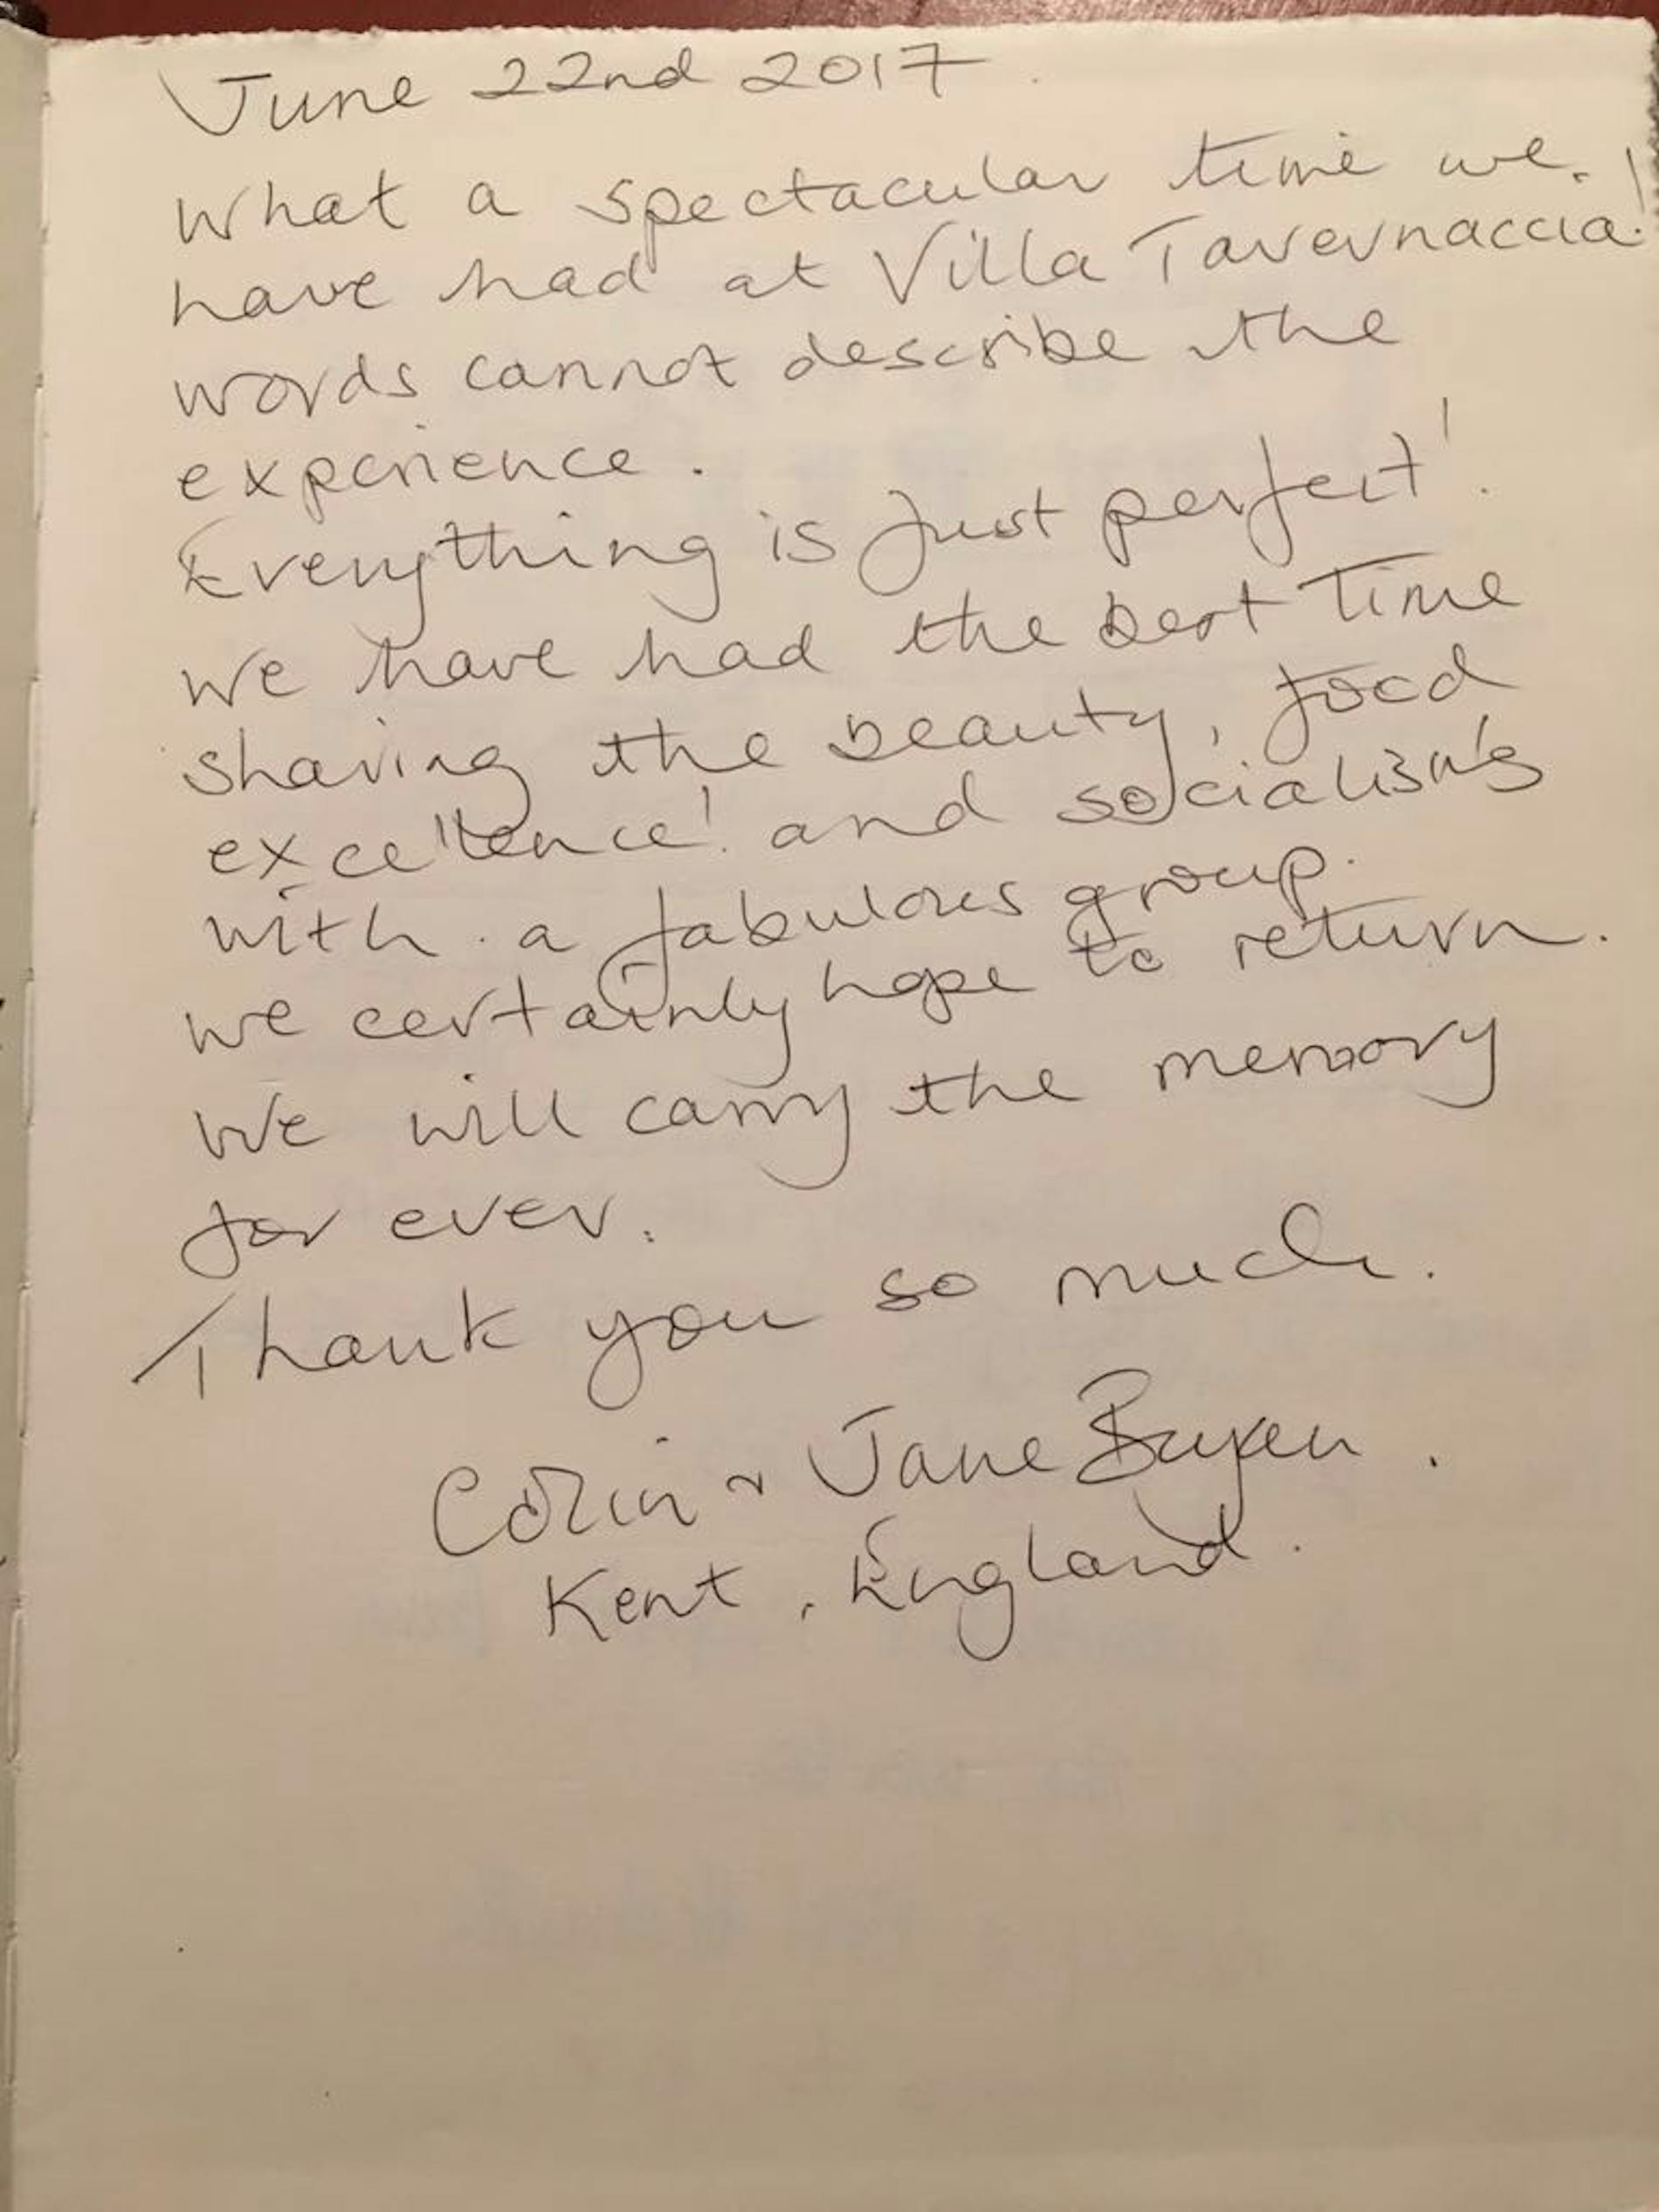 June 22nd 2017.
What a spectacular time we
have had at Villa Tavernaccia!
words cannot describe the
experience.
Everything is just perfect!
We have had the best time
sharing the beauty, food
excellence! and socialising
with a fabulous group.
We certainly hope to return.
We will carry the memory
for ever.
Thank you so much.
Colin & Jane
Kent, England.